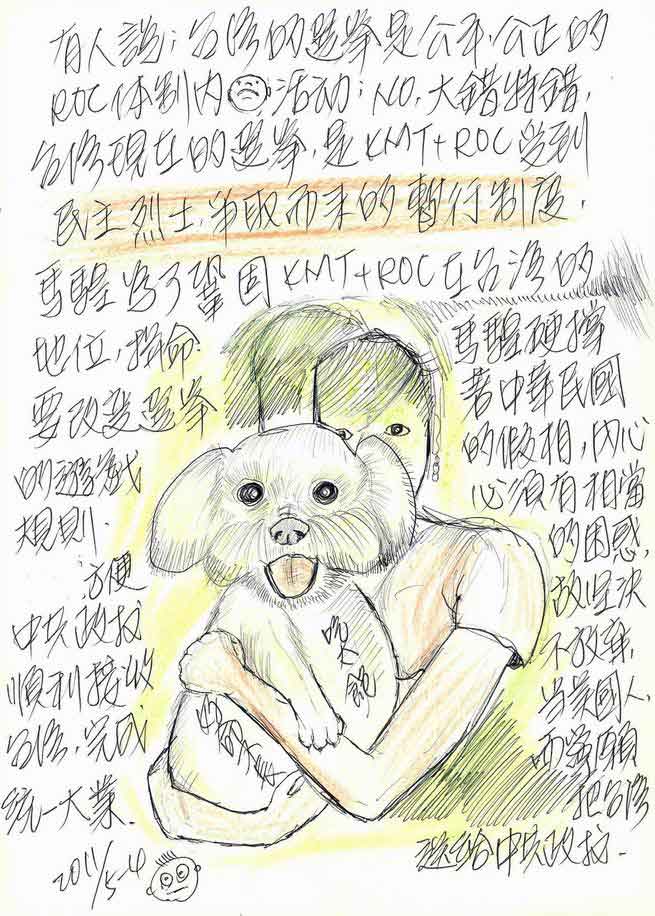 有人說；台灣的選舉是公平、公正的
ROC体制內活动；NO，大錯特錯，
台灣現在的選舉，是KMT+ROC受到
民主烈士，爭取而來的暫行制度，
馬騜為了鞏固KMT+ROC在台灣的
地位，拼命
要改变選舉
的遊戲
規則．
方便
中共政权
順利接收
台灣，完成
統一大業．
馬騜硬撐
著中華民國
的假相，內心
必須有相當
的困惑，
故坚决
不放棄，
当美國人，
而寧願
把台灣
送給中共政权．
2011/5-4